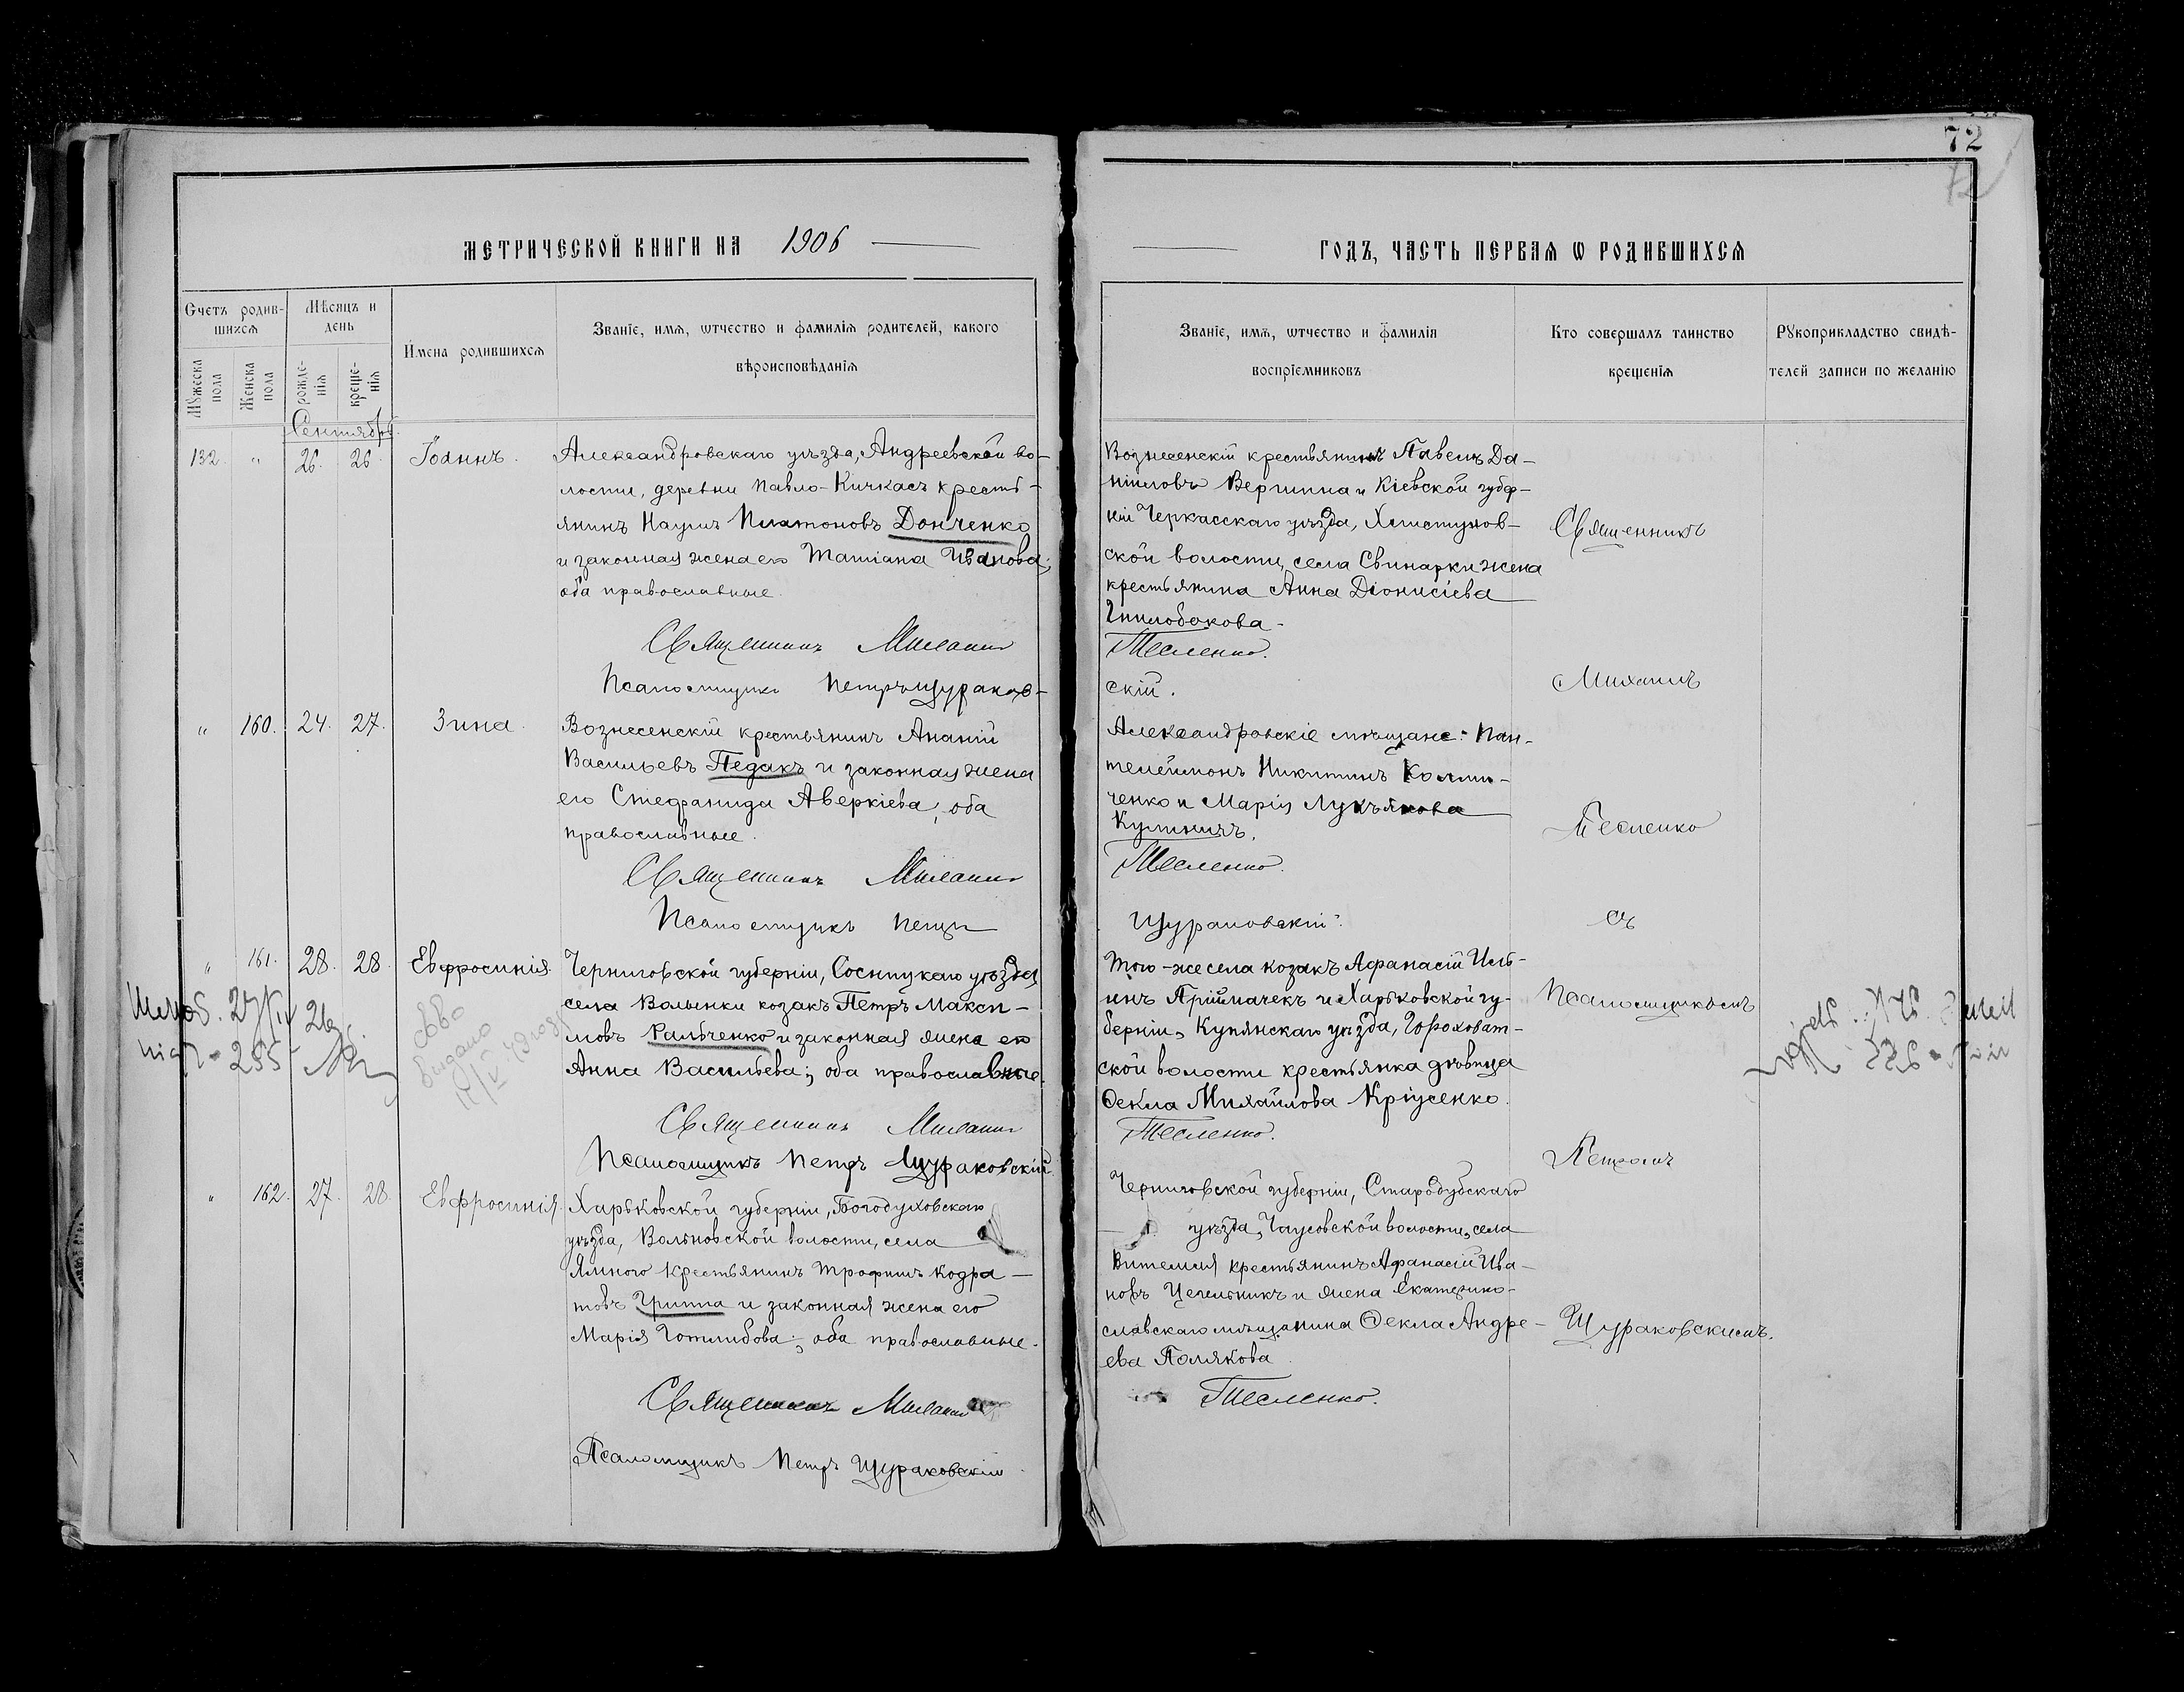 72
72
МЕТРИЧЕСКОЙ КНИГИ НА 1906
ГОДЪ, ЧАСТЬ ПЕРВАѦ Ѡ РОДИВШИХСѦ
Счетъ родив-
шихсѧ
Мѣсяцъ и
день
Мꙋжеска
пола
Женска
пола
рожде-
нїѧ
креще-
нїѧ
Имена родившихсѧ
Званїе, имѧ, ѡтчество и фамилїѧ родителей, какого
вѣроисповѣданїѧ
Званїе, имѧ, ѡтчество и фамилїѧ
воспрїемниковъ
Кто совершалъ таинство
крещенїѧ
Рꙋкоприкладство свидѣ-
телей записи по желанїю
Сентябрь
132. " 26. 26. Іоаннъ.
Александровскаго уѣзда, Андреевской во-
лости, деревни Павло-Кичкасъ кресть-
янинъ Наумъ Платоновъ Донченко
и законная жена его Татіана Иванова;
оба православные.
Священникъ Михаилъ
Псаломщикъ Петръ Щураков-
Вознесенскій крестьянинъ Павелъ Да-
ніиловъ Вершина и Кіевской губер-
ніи Черкасскаго уѣзда,
ской волости, села Свинарки жена
крестьянина Анна Діонисіева
Гнилобокова.
Тесленко.
скій.
" 160. 24. 27. Зина.
Вознесенскій крестьянинъ Ананій
Васильевъ Педакъ и законная жена
его Стефанида Аверкіева; оба
православные.
Священникъ Михаилъ
Псаломщикъ Петръ
Александровскіе мѣщане: Пан-
телеймонъ Никитинъ
ченко и Марія Лукьянова
Кулиничъ.
Тесленко.
Щураковскій.
" 161. 28. 28. Евфросинія.
Черниговской губерніи, Сосницкаго уѣзда
села Волынки козакъ Петръ Макси-
мовъ Ральченко и законная жена его
Анна Васильева; оба православные.
Священникъ Михаилъ
Псаломщикъ Петръ Щураковскій.
Того-же села козакъ Афанасій Иль-
инъ Пріймачекъ и Харьковской гу-
берніи, Купянскаго уѣзда, Гороховат-
ской волости крестьянка дѣвица
Ѳекла Михайлова Кріусенко.
Тесленко.
255
Выдано
" 162. 27. 28. Евфросинія.
Харьковской губерніи, Богодуховскаго
уѣзда, Вольновской волости, села
Ямного крестьянинъ Трофимъ Кодра-
товъ Гриппа и законная жена его
Марія Готлибова; оба православные.
Священникъ Михаилъ
Псаломщикъ Петръ Щураковскій.
Черниговской губерніи, Стародубскаго
уѣзда, волости, села
Витемля крестьянинъ Афанасій Ива-
новъ Цегельникъ и жена Екатерино-
славскаго мѣщанина Ѳекла Андре-
ева Полякова.
Тесленко.
Священникъ
Михаилъ
Тесленко
съ
Псаломщикомъ
Петромъ
Щураковскимъ.